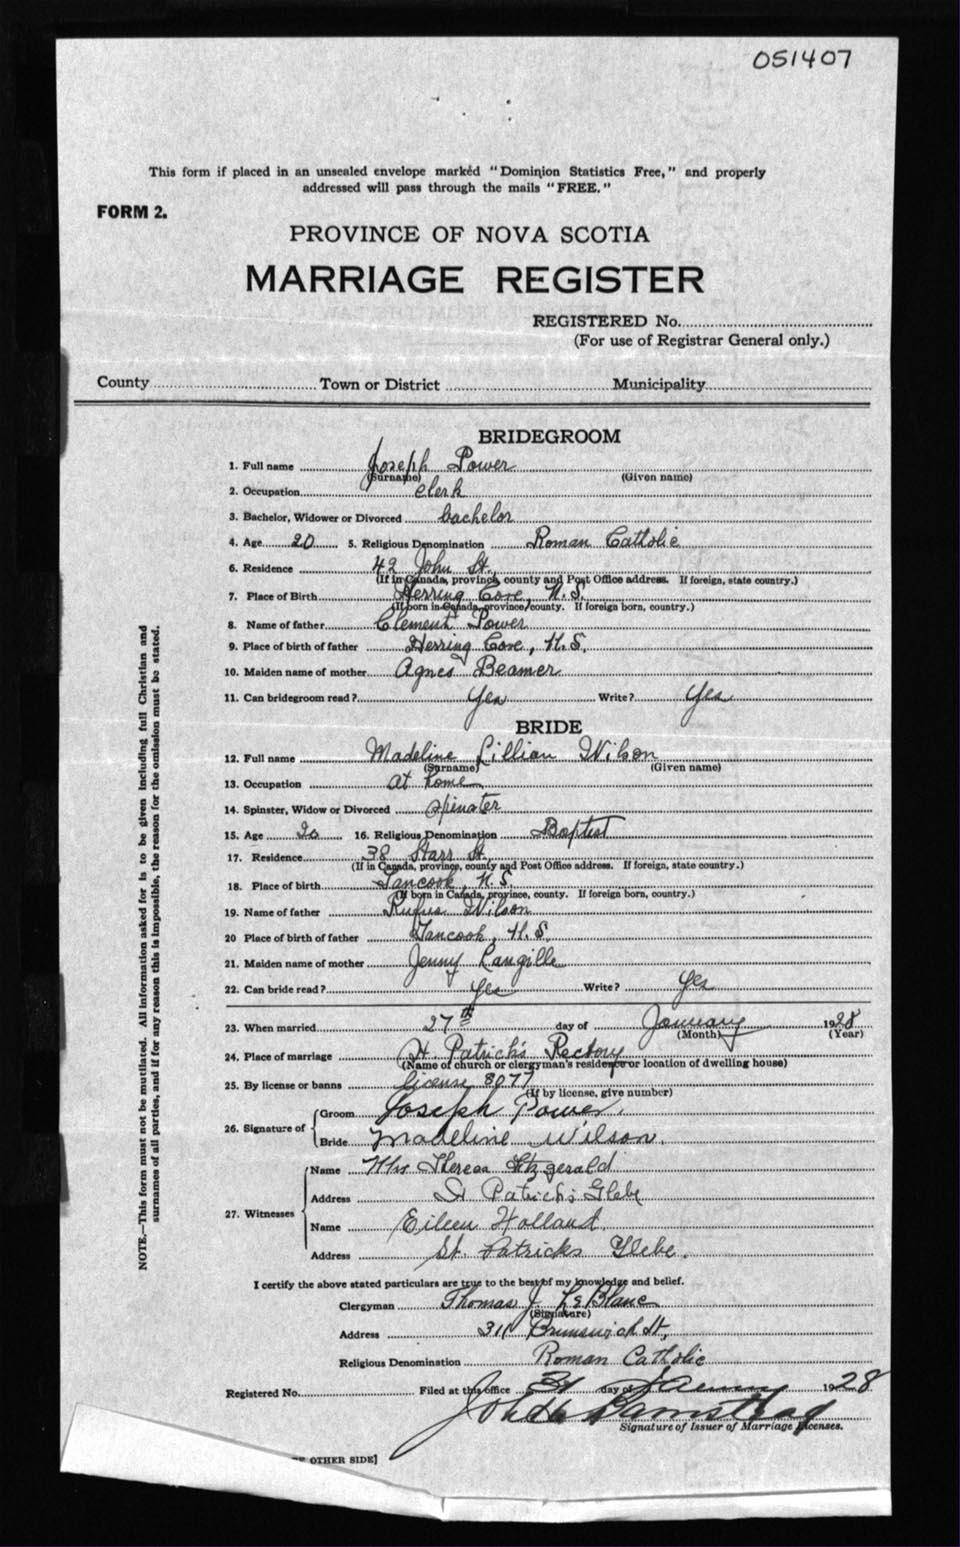 051407
This form if placed in an unsealed envelope marked "Dominion Statistics Free," and properly
addressed will pass through the mails "FREE."
FORM 2.
PROVINCE OF NOVA SCOTIA
MARRIAGE REGISTER
REGISTERED No.
(For use of Registrar General only.)
County Town or District Municipality
BRIDEGROOM
1. Full name Joseph Power
(Surname) (Given name)
2. Occupation clerk
3. Bachelor, Widower or Divorced bachelor
4. Age 20 5. Religious Denomination Roman Catholic
6. Residence 42 John St.
(If in Canada, province, county and Post Office address. If foreign, state country.)
7. Place of Birth Herring Cove, N.S.
(If born in Canada, province/county. If foreign born, country.)
8. Name of father Clement Power
9. Place of birth of father Herring Cove, N.S.
10. Maiden name of mother Agnes Beamer
11. Can bridegroom read? Yes Write? Yes
BRIDE
12. Full name Madeline Lillian Wilson
(Surname) (Given name)
13. Occupation at home
14. Spinster, Widow or Divorced spinster
15. Age 20 16. Religious Denomination Baptist
17. Residence 38 Starr St.
(If in Canada, province, county and Post Office address. If foreign, state country.)
18. Place of birth Tancook, N.S.
(If born in Canada, province, county. If foreign born, country.)
19. Name of father Rufus Wilson
20 Place of birth of father Tancook, N.S.
21. Maiden name of mother Jenny Langille
22. Can bride read? Yes Write? Yes
23. When married 27th day of January 1928
(Month) (Year)
24. Place of marriage St Patrick's Rectory
(Name of church or clergyman's residence or location of dwelling house)
25. By license or banns license 8077
(If by license, give number)
26. Signature of
Groom Joseph Power.
Bride Madeline Wilson.
27. Witnesses
Name Mrs Theresa Fitzgerald
Address St Patrick's Glebe
Name Eileen Holland.
Address St. Patricks Glebe.
I certify the above stated particulars are true to the best of my knowledge and belief.
Clergyman Thomas J. LeBlanc
(Signature)
Address 311 Brunswick St,
Religious Denomination Roman Catholic
Registered No. Filed at this office 31 day of January 1928
Signature of Issuer of Marriage Licenses.
OTHER SIDE]
NOTE.—This form must not be mutilated. All information asked for is to be given including full Christian and
surnames of all parties, and if for any reason this is impossible, the reason for the omission must be stated.